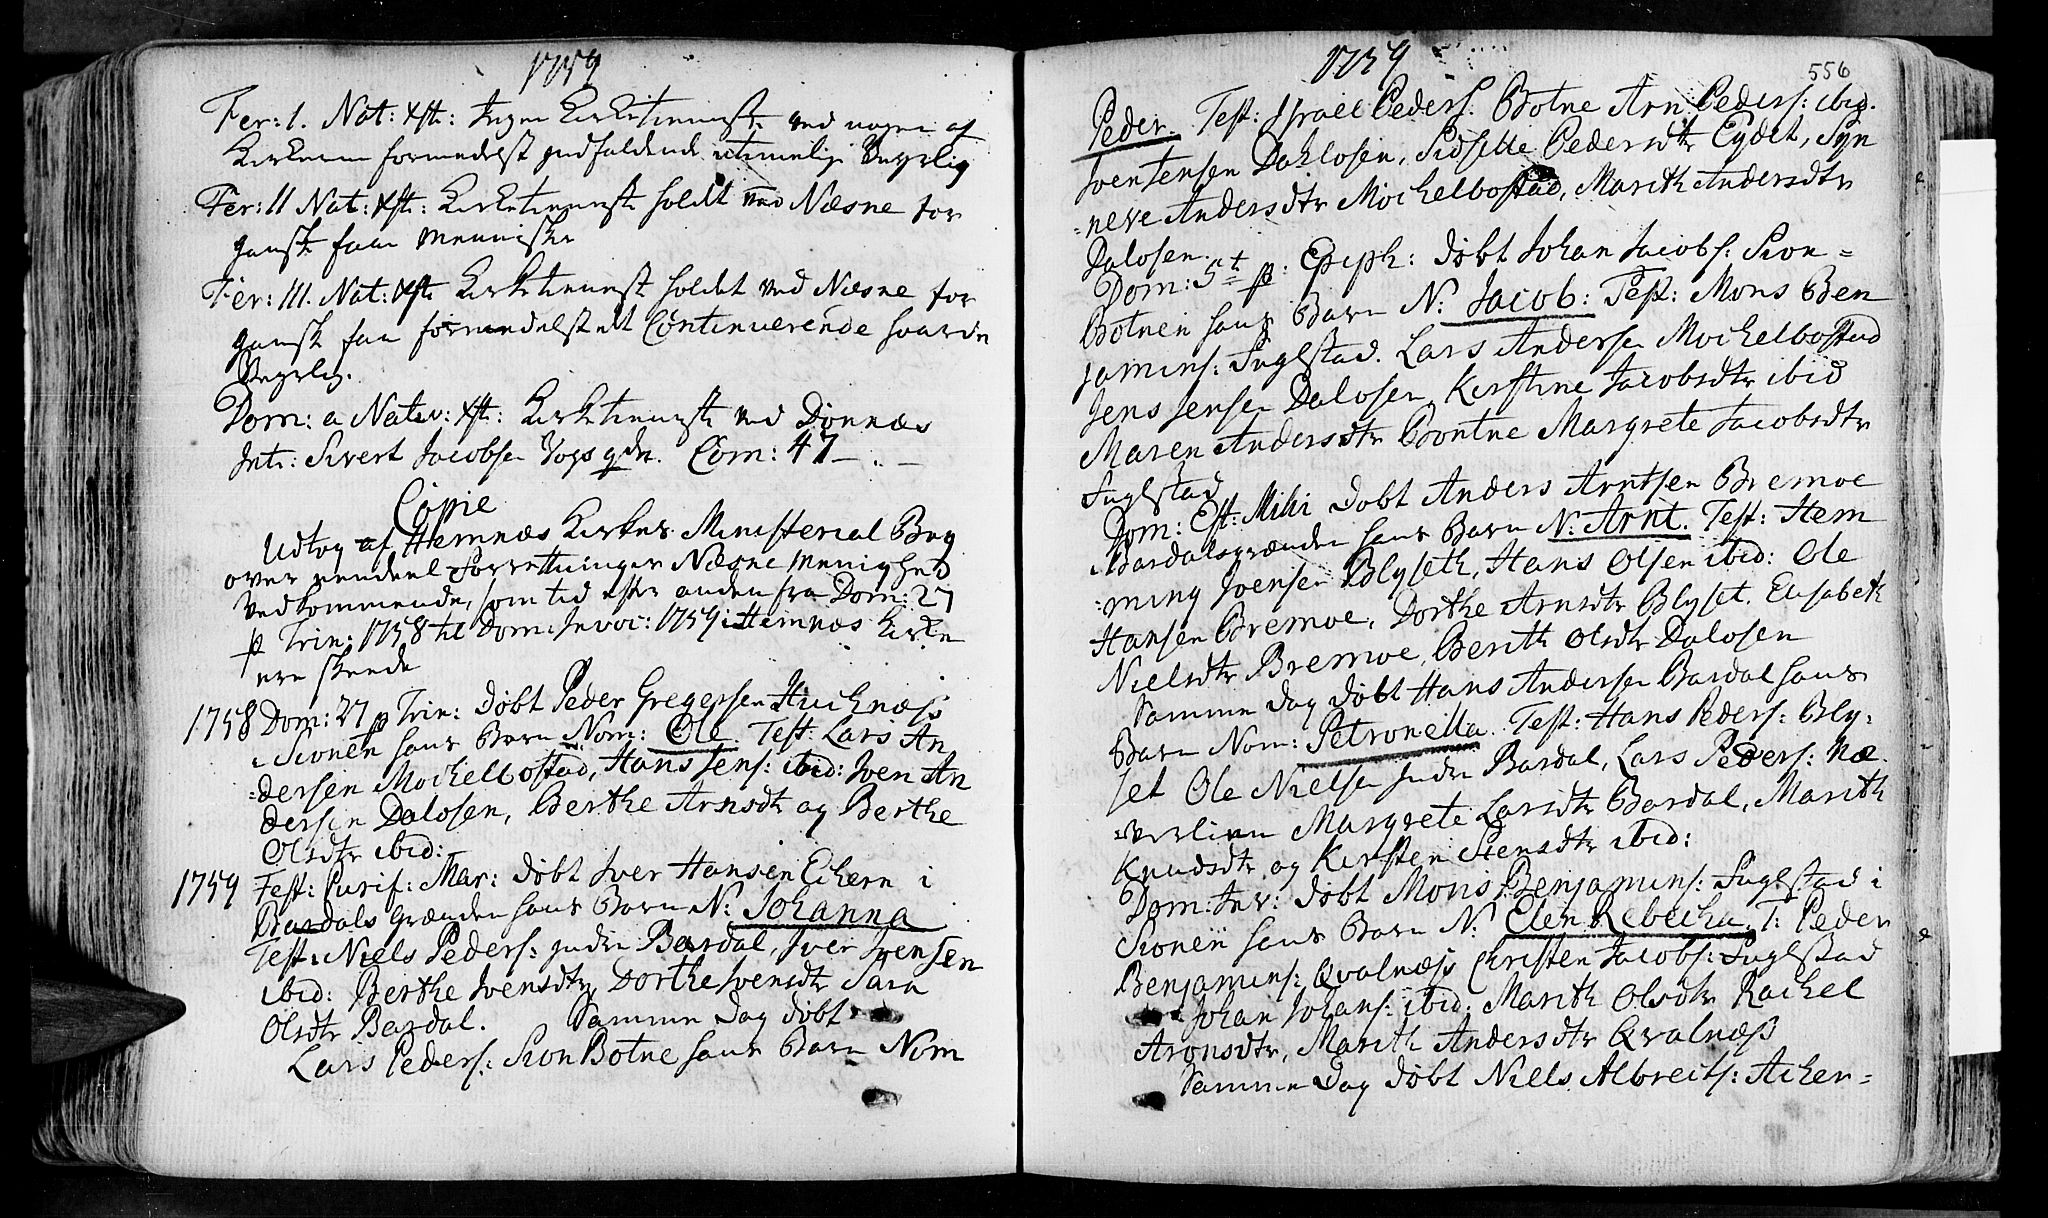 1759
Fer: I. Nat: Xsti: Ingen Kirketienneste ved nogen af
Kirkerne formedelst indfaldende utimelig Veyrlig
Fer: II Nat: Xsti: Kirketienneste holdt ved Næsne for
gansk faa Mennisker
Fer: III. Nat: Xsti Kirketienneste holdet ved Næsne for
gansk faa formedelst dt Continuerende haarde
Veyrlig.
Dom: a Nativ: Xsti: Kirketienneste ved Dønnæs
Int: Sivert Jacobsen Com: 47 –
Copie
Udtog af Hemnæs Kirkes Ministerial Bog
over eendeel Forrettninger Næsne Menighed
vedkommende, som tid efter anden fra Dom: 27
p Trin: 1758 til Dom: Invoc: 1759 i Hemnæs Kirke
ere skeede
1758 Dom: 27 p Trin: døbt Peder Gregersen Huchnæss
i Sionen hans Barn Nom: Ole. Test: Lars An
dersen Mochelbostad, Hans Jens: ibid: Iven An
dersen Dalosen, Berthe Arnsdtr og Berthe
Olsdtr ibid:
1759 Fest: Purif: Mar: døbt Iver Hansen Eichern i
Bardals Grænden hans Barn N: Johanna
Test: Niels Peders: indre Bardal, Iver Ivensen
ibid: Berthe Ivensdtr, Dorthe Ivensdtr Sara
Olsdtr Bardal. Samme Dag døbt
Lars Peders: Sion Botne hans Barn Nom
1759
556
Peder. Test: Israel Peders. Botne Arn Peders: ibid.
Iven Jensen Dahlosen, Sidselle Pedersdtr Eydet, Syn
neve Andersdtr Mochelbostad, Marith Andersdtr
Dalosen.
Dom: 5t p: Epiph: døbt Johan Jacobs: Sion-
Botnen hans Barn N: Jacob: Test: Mons Ben
jamins: Fuglstad. Lars Andersen Mochelbostad
Jens Jensen Dalosen, Kirstine Jacobsdtr ibid
Maren Andersdtr Bontne Margrete Jacobsdtr
Fuglstad
Dom: Est: Mihi døbt Anders Arntsen Bremoe
i Bardalsgrænden hans Barn N: Arnt. Test: Hem
ming Ivensen Blyseth, Hans Olsen ibid: Ole
Hansen Bremoe, Dorthe Arnsdtr Blyset. Elisabeth
Nielsdtr Bremoe, Berith Olsdtr Dalosen
Samme Dag døbt Hans Andersen Bardal hans
Barn Nom: Petronella. Test: Hans Peders: Bly-
set Ole Nielsen Indre Bardal, Lars Peders: Næ-
verlien Margrete Larsdtr Bardal, Marith
Knudsdtr og Kirsten Stensdtr ibid:
Dom: Inv: døbt Mons Benjamins: Fuglstad i
Sionen hans Barn N: Elen Rebecha. T: Peder
Benjamins: Qvalnæss Christen Jacobs: Fuglstad
Johan Johans: ibid: Marith Olsdtr Rachel
Aronsdtr, Marith Andersdtr Qvalnæss
Samme Dag døbt Niels Albrects: Acher-